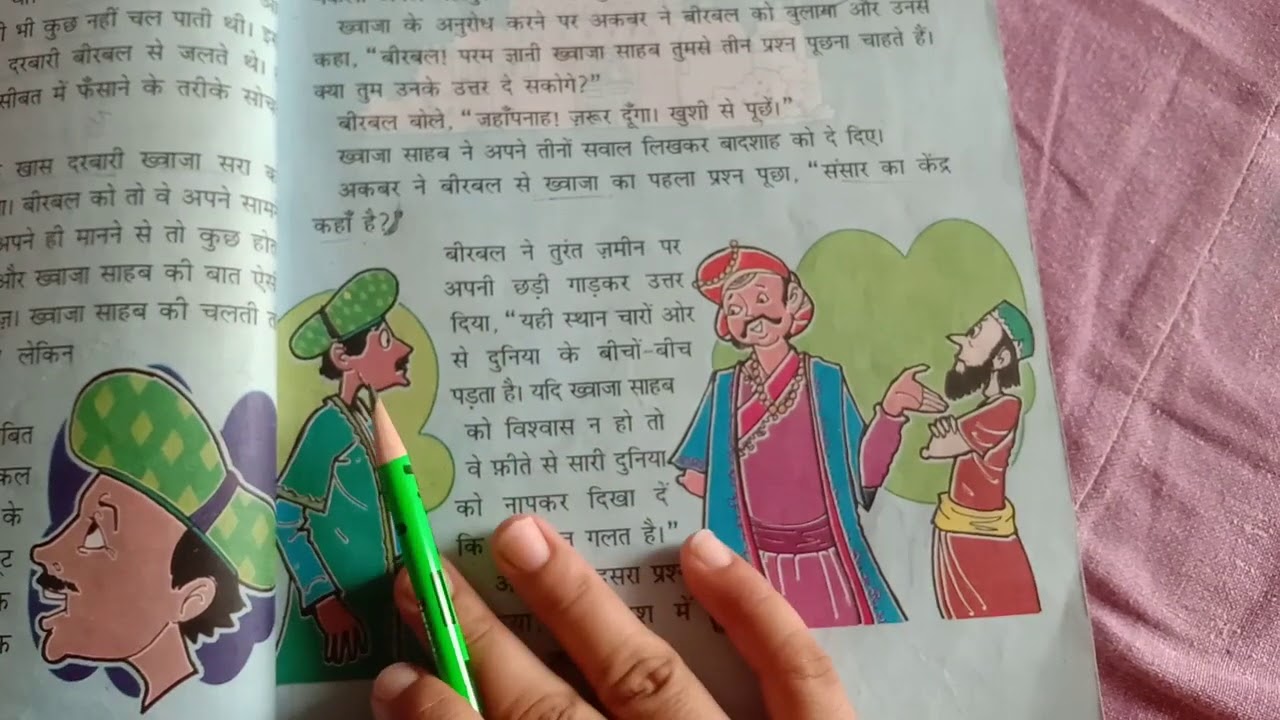 भी कुछ नहीं चल पाती थी।
दरबारी बीरबल से जलते थे।
में फँसाने के तरीके सोच
खास दरबारी ख्वाजा सरा
बीरबल को तो वे अपने
अपने ही मानने से तो कुछ
और ख्वाजा साहब की बात
ख्वाजा साहब की चलती
लेकिन
के
ख्वाजा के अनुरोध करने पर अकबर ने बीरबल को बुलाया और उनसे
कहा, “बीरबल! परम ज्ञानी ख्वाजा साहब तुमसे तीन प्रश्न पूछना चाहते हैं।
क्या तुम उनके उत्तर दे सकोगे?”
बीरबल बोले, “जहाँपनाह! ज़रूर दूँगा। खुशी से पूछें।”
ख्वाजा साहब ने अपने तीनों सवाल लिखकर बादशाह को दे दिए।
अकबर ने बीरबल से ख्वाजा का पहला प्रश्न पूछा, “संसार का केंद्र
कहाँ है?”
बीरबल ने तुरंत ज़मीन पर
अपनी छड़ी गाड़कर उत्तर
दिया, “यही स्थान चारों ओर
से दुनिया के बीचों-बीच
पड़ता है। यदि ख्वाजा साहब
को विश्वास न हो तो
वे फ़ीते से सारी दुनिया
को नापकर दिखा दें
कि गलत है।”
दूसरा
में